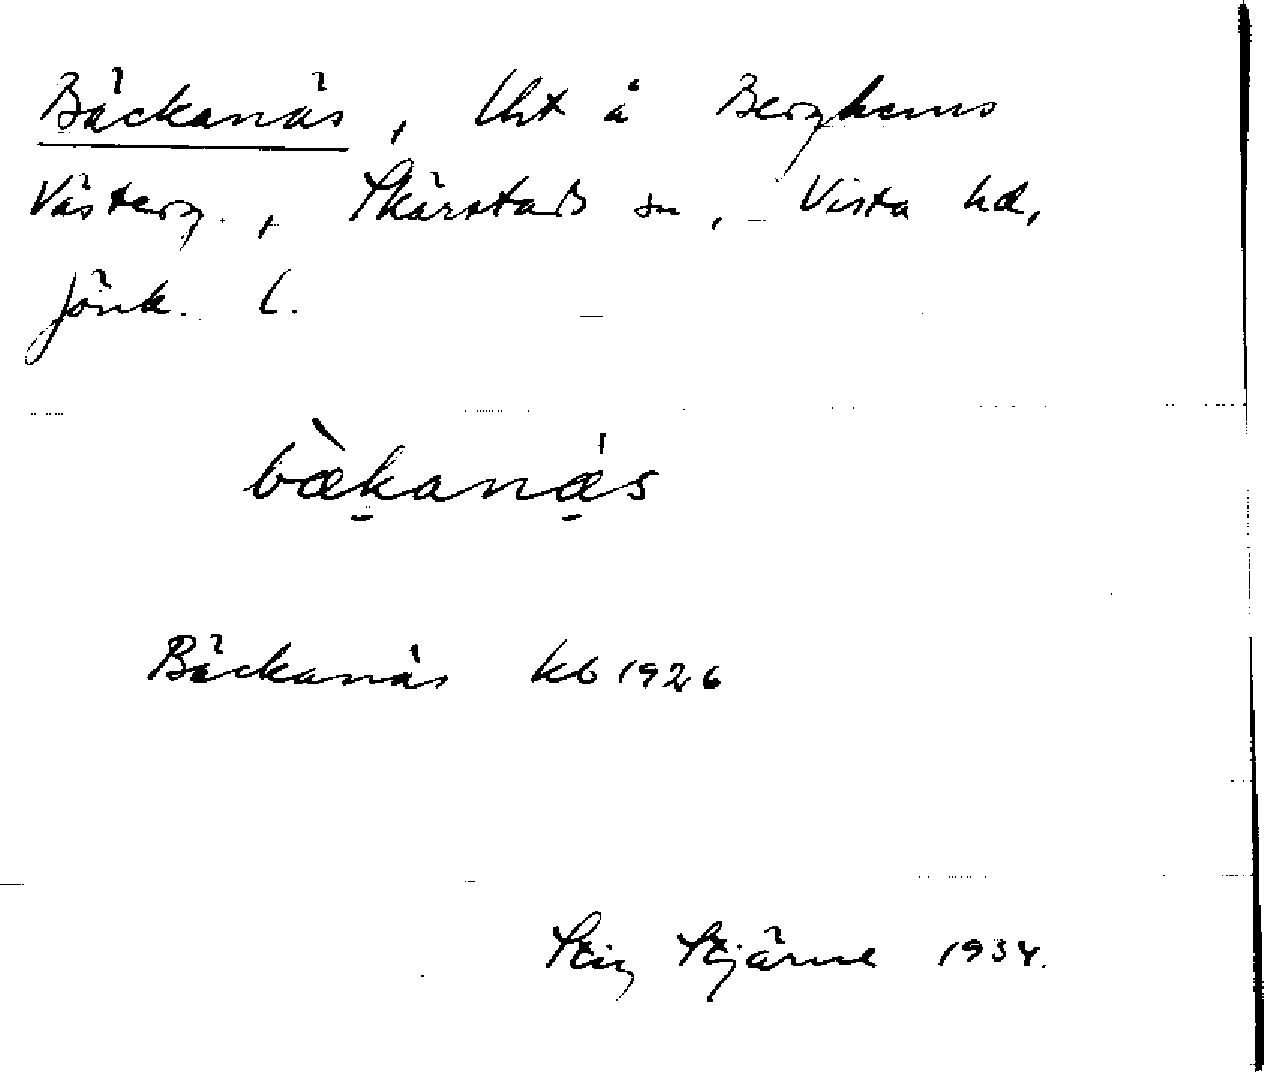 Bäckanäs, lht å Berghems
Västerg., Skärstads sn, Vista hd,
Jönk. l.
bæ̀ḵanǽ̱s
Bäckanäs kb 1926
Stig Stjärne 1934.